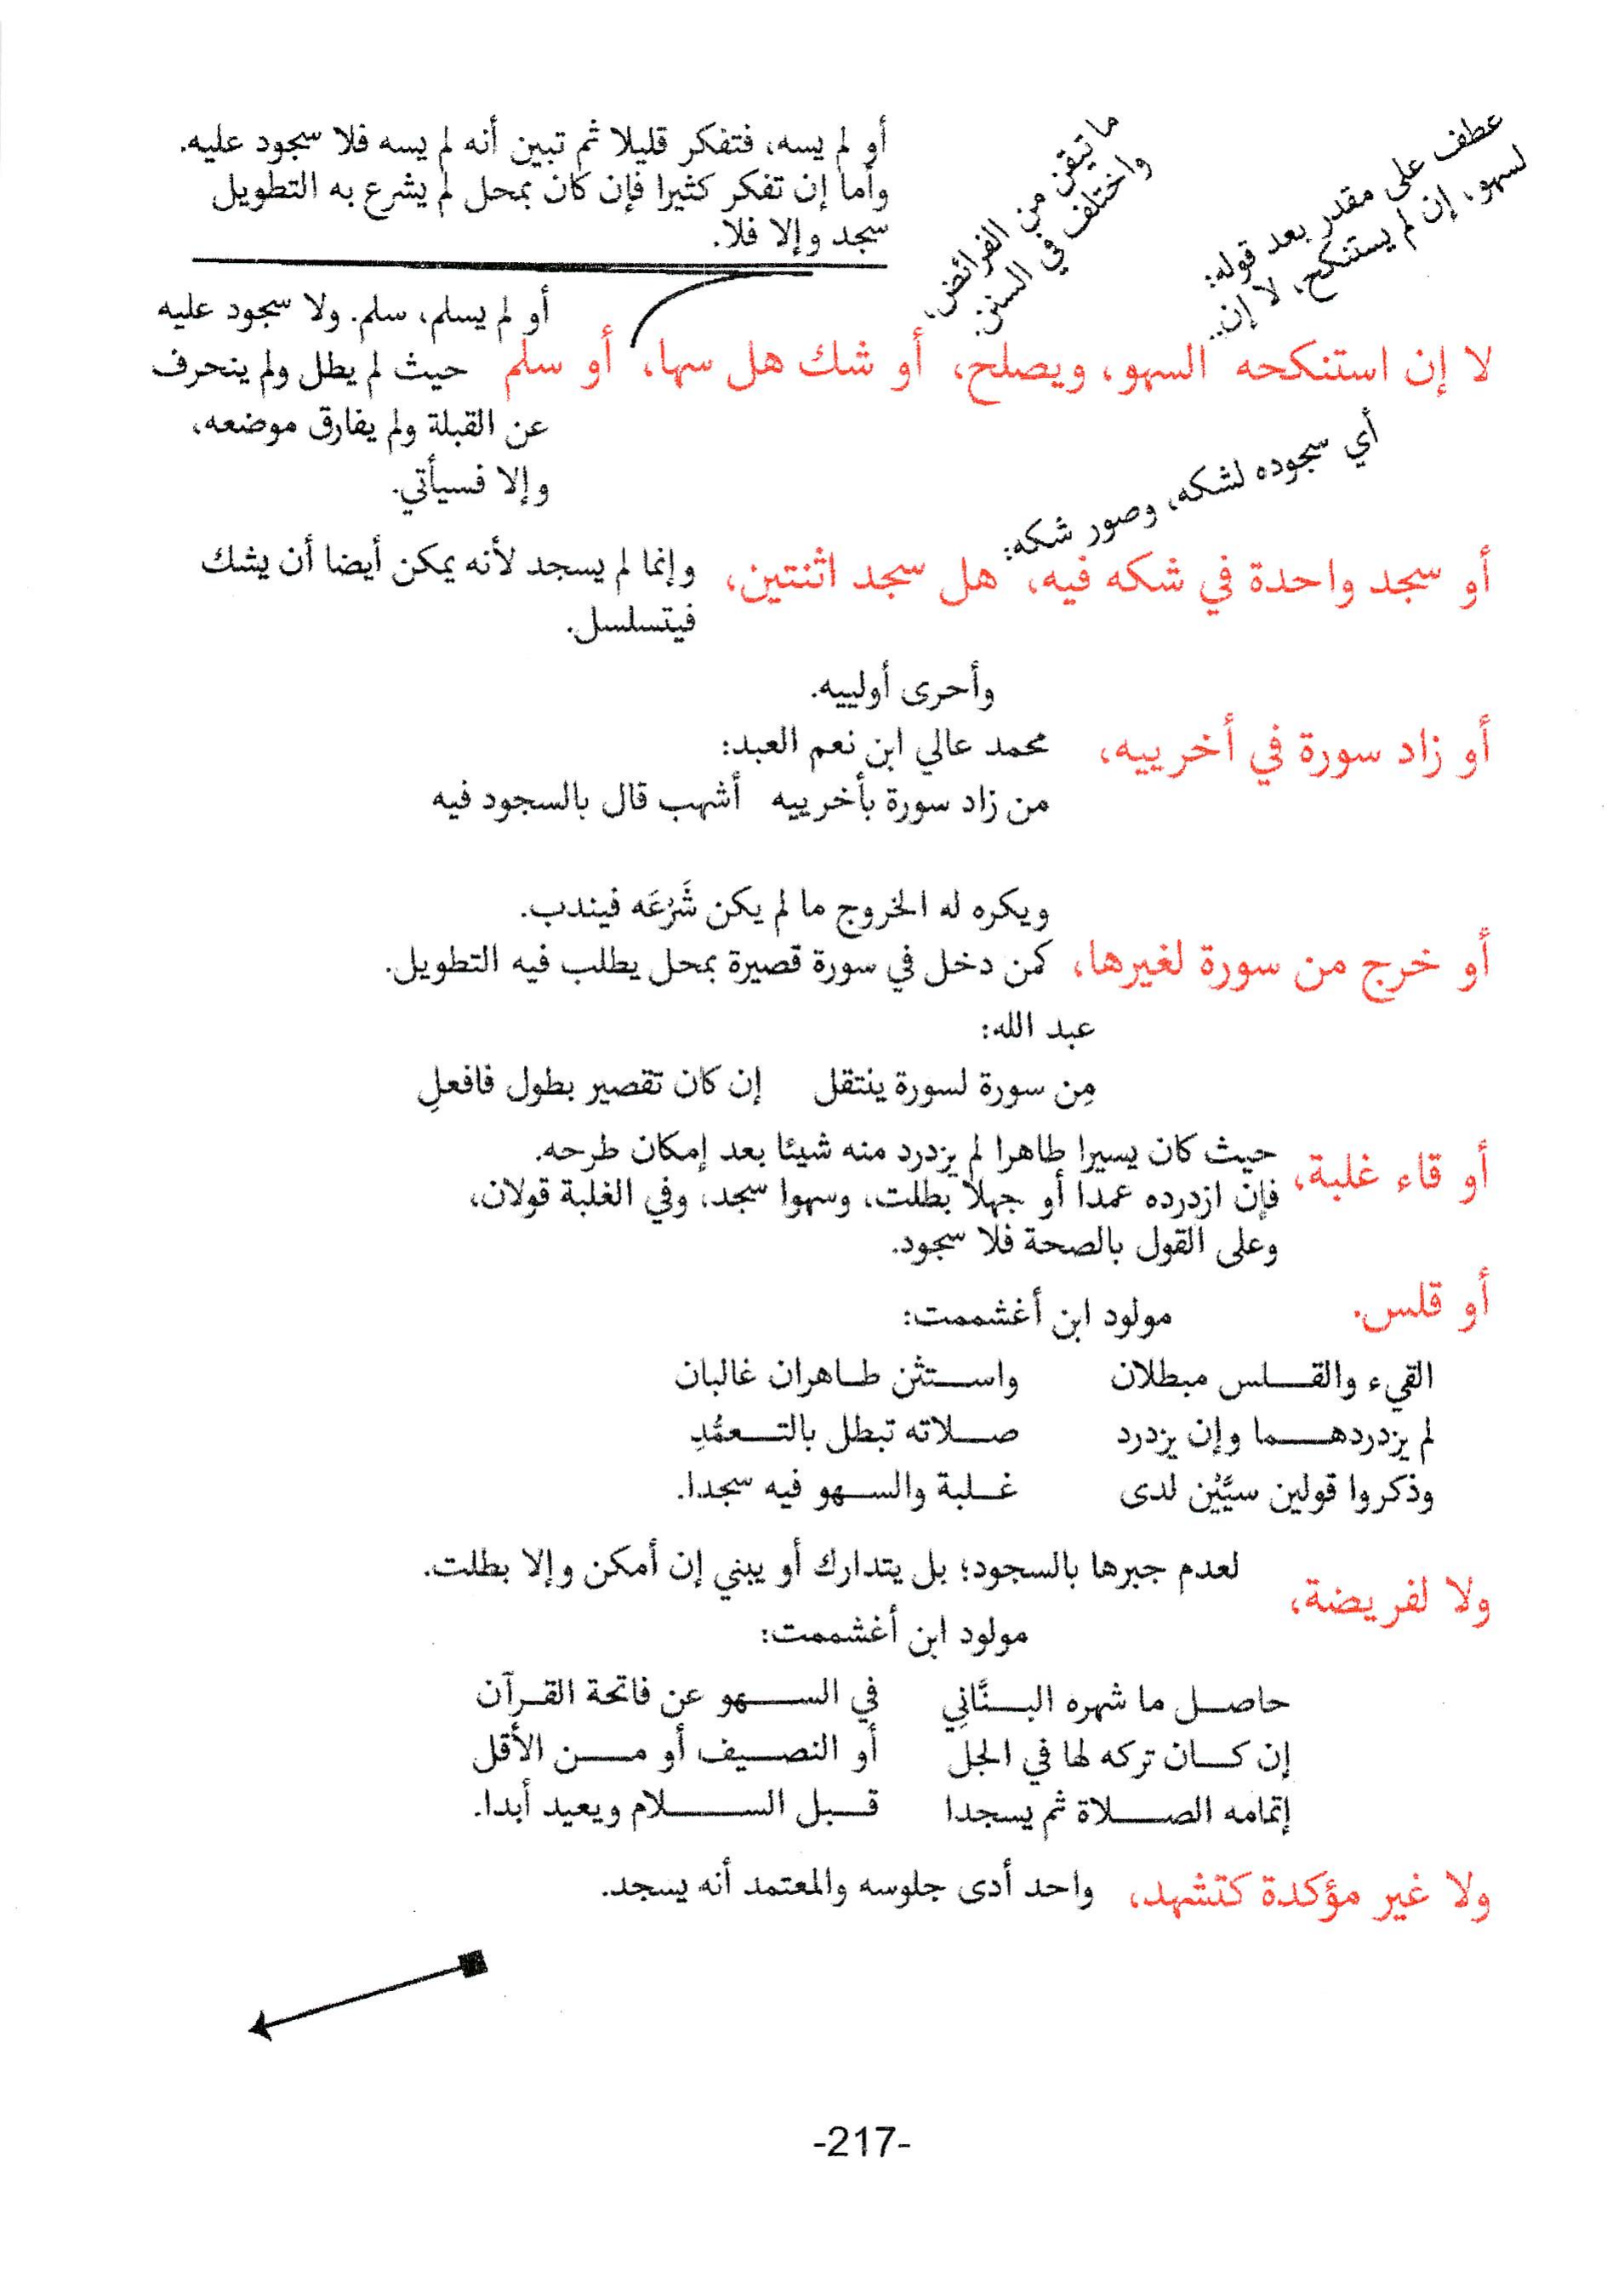 عطف على مقدر بعد قوله:
لسهو، إن لم يستنكح، لا إن..
ما تيقن من الفرائض،
واختلف في السنن.
أو لم يسه، فتفكر قليلا ثم تبين أنه لم يسه فلا سجود عليه.
وأما إن تفكر كثيرا فإن كان بمحل لم يشرع به التطويل
سجد وإلا فلا.
لا إن استنكحه السهو، ويصلح، أو شك هل سها، أو سلم
أو لم يسلم، سلم. ولا سجود عليه
حيث لم يطل ولم ينحرف
عن القبلة ولم يفارق موضعه،
وإلا فسيأتي.
أي سجوده لشكه، وصور شكه:
أو سجد واحدة في شكه فيه، هل سجد اثنتين،
وإنما لم يسجد لأنه يمكن أيضا أن يشك
فيتسلسل.
وأحرى أولييه.
أو زاد سورة في أخرييه،
محمد عالي ابن نعم العبد:
من زاد سورة بأخرييه أشهب قال بالسجود فيه
ويكره له الخروج ما لم يكن شَرْعَه فيندب.
أو خرج من سورة لغيرها،
كمن دخل في سورة قصيرة بمحل يطلب فيه التطويل.
عبد الله:
مِن سورة لسورة ينتقل إن كان تقصير بطول فافعلِ
أو قاء غلبة،
حيث كان يسيرا طاهرا لم يزدرد منه شيئا بعد إمكان طرحه.
فإن ازدرده عمدا أو جهلا بطلت، وسهوا سجد، وفي الغلبة قولان،
وعلى القول بالصحة فلا سجود.
أو قلس.
مولود ابن أغشممت:
القيء والقلس مبطلان واستثن طاهران غالبان
لم يزدردهما وإن يزدرد صلاته تبطل بالتعمُّدِ
وذكروا قولين سيَّيْن لدى غلبة والسهو فيه سجدا.
ولا لفريضة،
لعدم جبرها بالسجود؛ بل يتدارك أو يبني إن أمكن وإلا بطلت.
مولود ابن أغشممت:
حاصل ما شهره البنَّانِي في السهو عن فاتحة القرآن
إن كان تركه لها في الجل أو النصيف أو من الأقل
إتمامه الصلاة ثم يسجدا قبل السلام ويعيد أبدا.
ولا غير مؤكدة كتشهد،
واحد أدى جلوسه والمعتمد أنه يسجد.
-217-